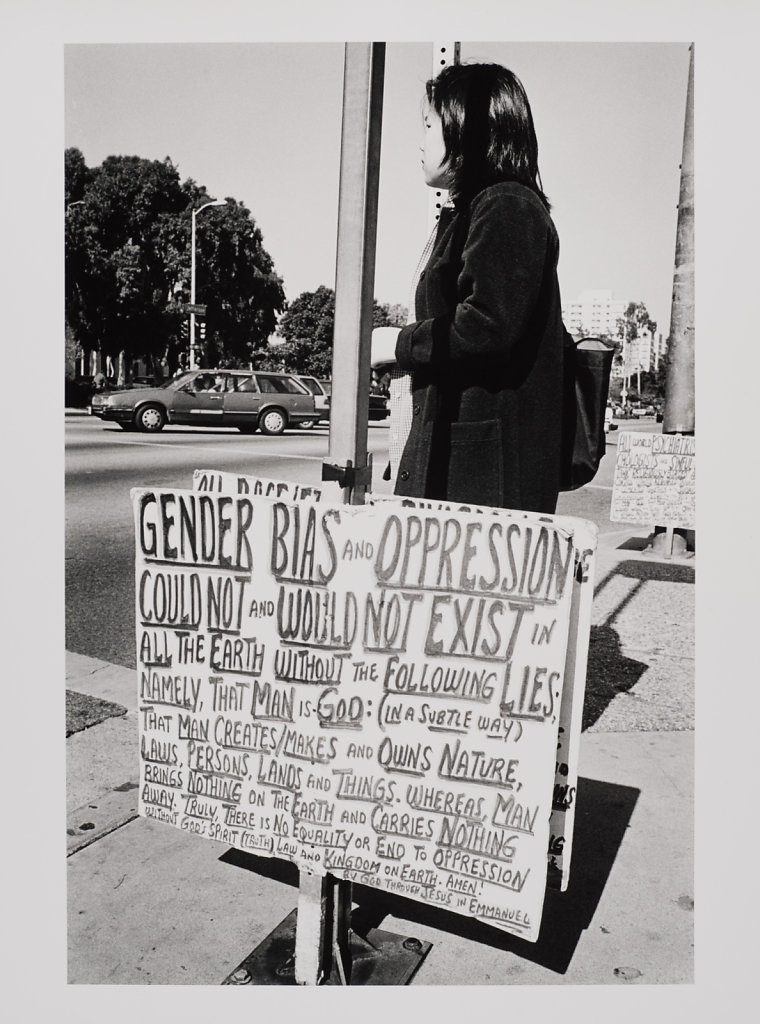 ALL RACE
GENDER BIAS AND OPPRESSION
COULD NOT AND WOULD NOT EXIST IN
ALL THE EARTH WITHOUT THE FOLLOWING LIES;
NAMELY, THAT MAN IS GOD: (IN A SUBTLE WAY)
THAT MAN CREATES/MAKES AND OWNS NATURE,
LAWS, PERSONS, LANDS AND THINGS. WHEREAS, MAN
BRINGS NOTHING ON THE EARTH AND CARRIES NOTHING
AWAY. TRULY, THERE IS NO EQUALITY OR END TO OPPRESSION
WITHOUT GOD'S SPIRIT (TRUTH), LAW AND KINGDOM ON EARTH. AMEN!
BY GOD THROUGH JESUS IN EMMANUEL
ALL WORLD